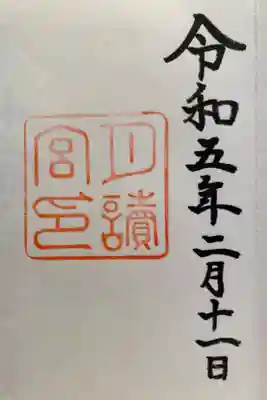 令和五年二月十一日
月讀
宮印